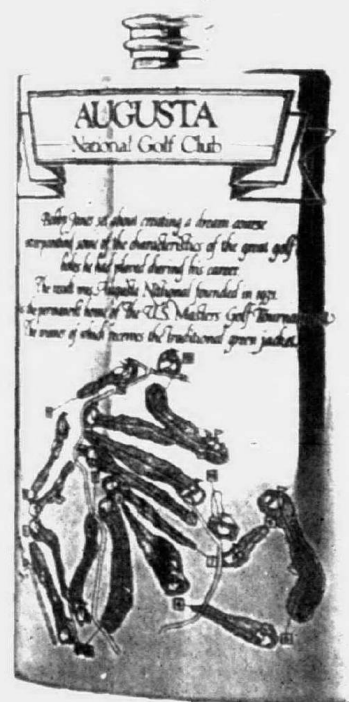 AUGUSTA
National Golf Club
Bobby Jones set about creating a dream course
incorporating some of the characteristics of the great golf
holes he had played during his career.
The result was Augusta National founded in 1931.
is the permanent home of The U.S. Masters Golf Tournament
The winner of which receives the traditional green jacket.